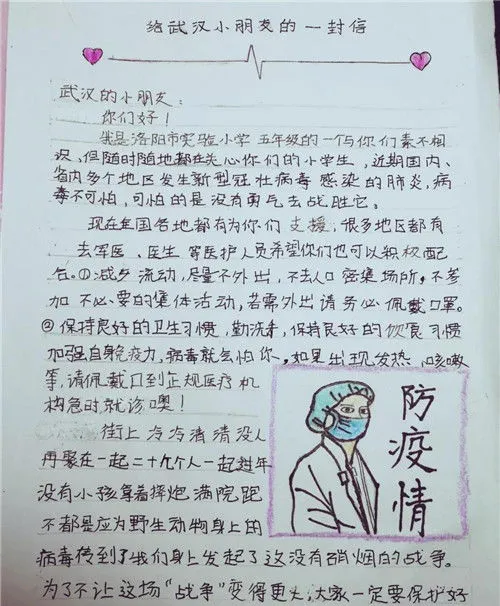 给武汉小朋友的一封信
武汉的小朋友：
你们好！
我是洛阳市实验小学五年级的一个与你们素不相
识，但随时随地都在关心你们的小学生，近期国内、
省内多个地区发生新型冠壮病毒感染的肺炎，病
毒不可怕，可怕的是没有勇气去战胜它。
现在全国各地都有为你们支援，很多地区都有
去军医、医生等医护人员希望你们也可以积极配
合。①减少流动，尽量不外出，不去人口密集场所，不参
加不必要的集体活动，若需外出请务必佩戴口罩。
②保持良好的卫生习惯，勤洗手，保持良好的饮食习惯
加强自身免疫力，病毒就会怕你。如果出现发热、咳嗽
等，请佩戴口到正规医疗机
构急时就诊噢！
街上冷冷清清没人
再聚在一起二十几个人一起过年
没有小孩拿着摔炮满院跑
不都是应为野生动物身上的
病毒传到了我们身上发起了这没有硝烟的战争。
为了不让这场“战争”变得更大，大家一定要保护好
防疫情